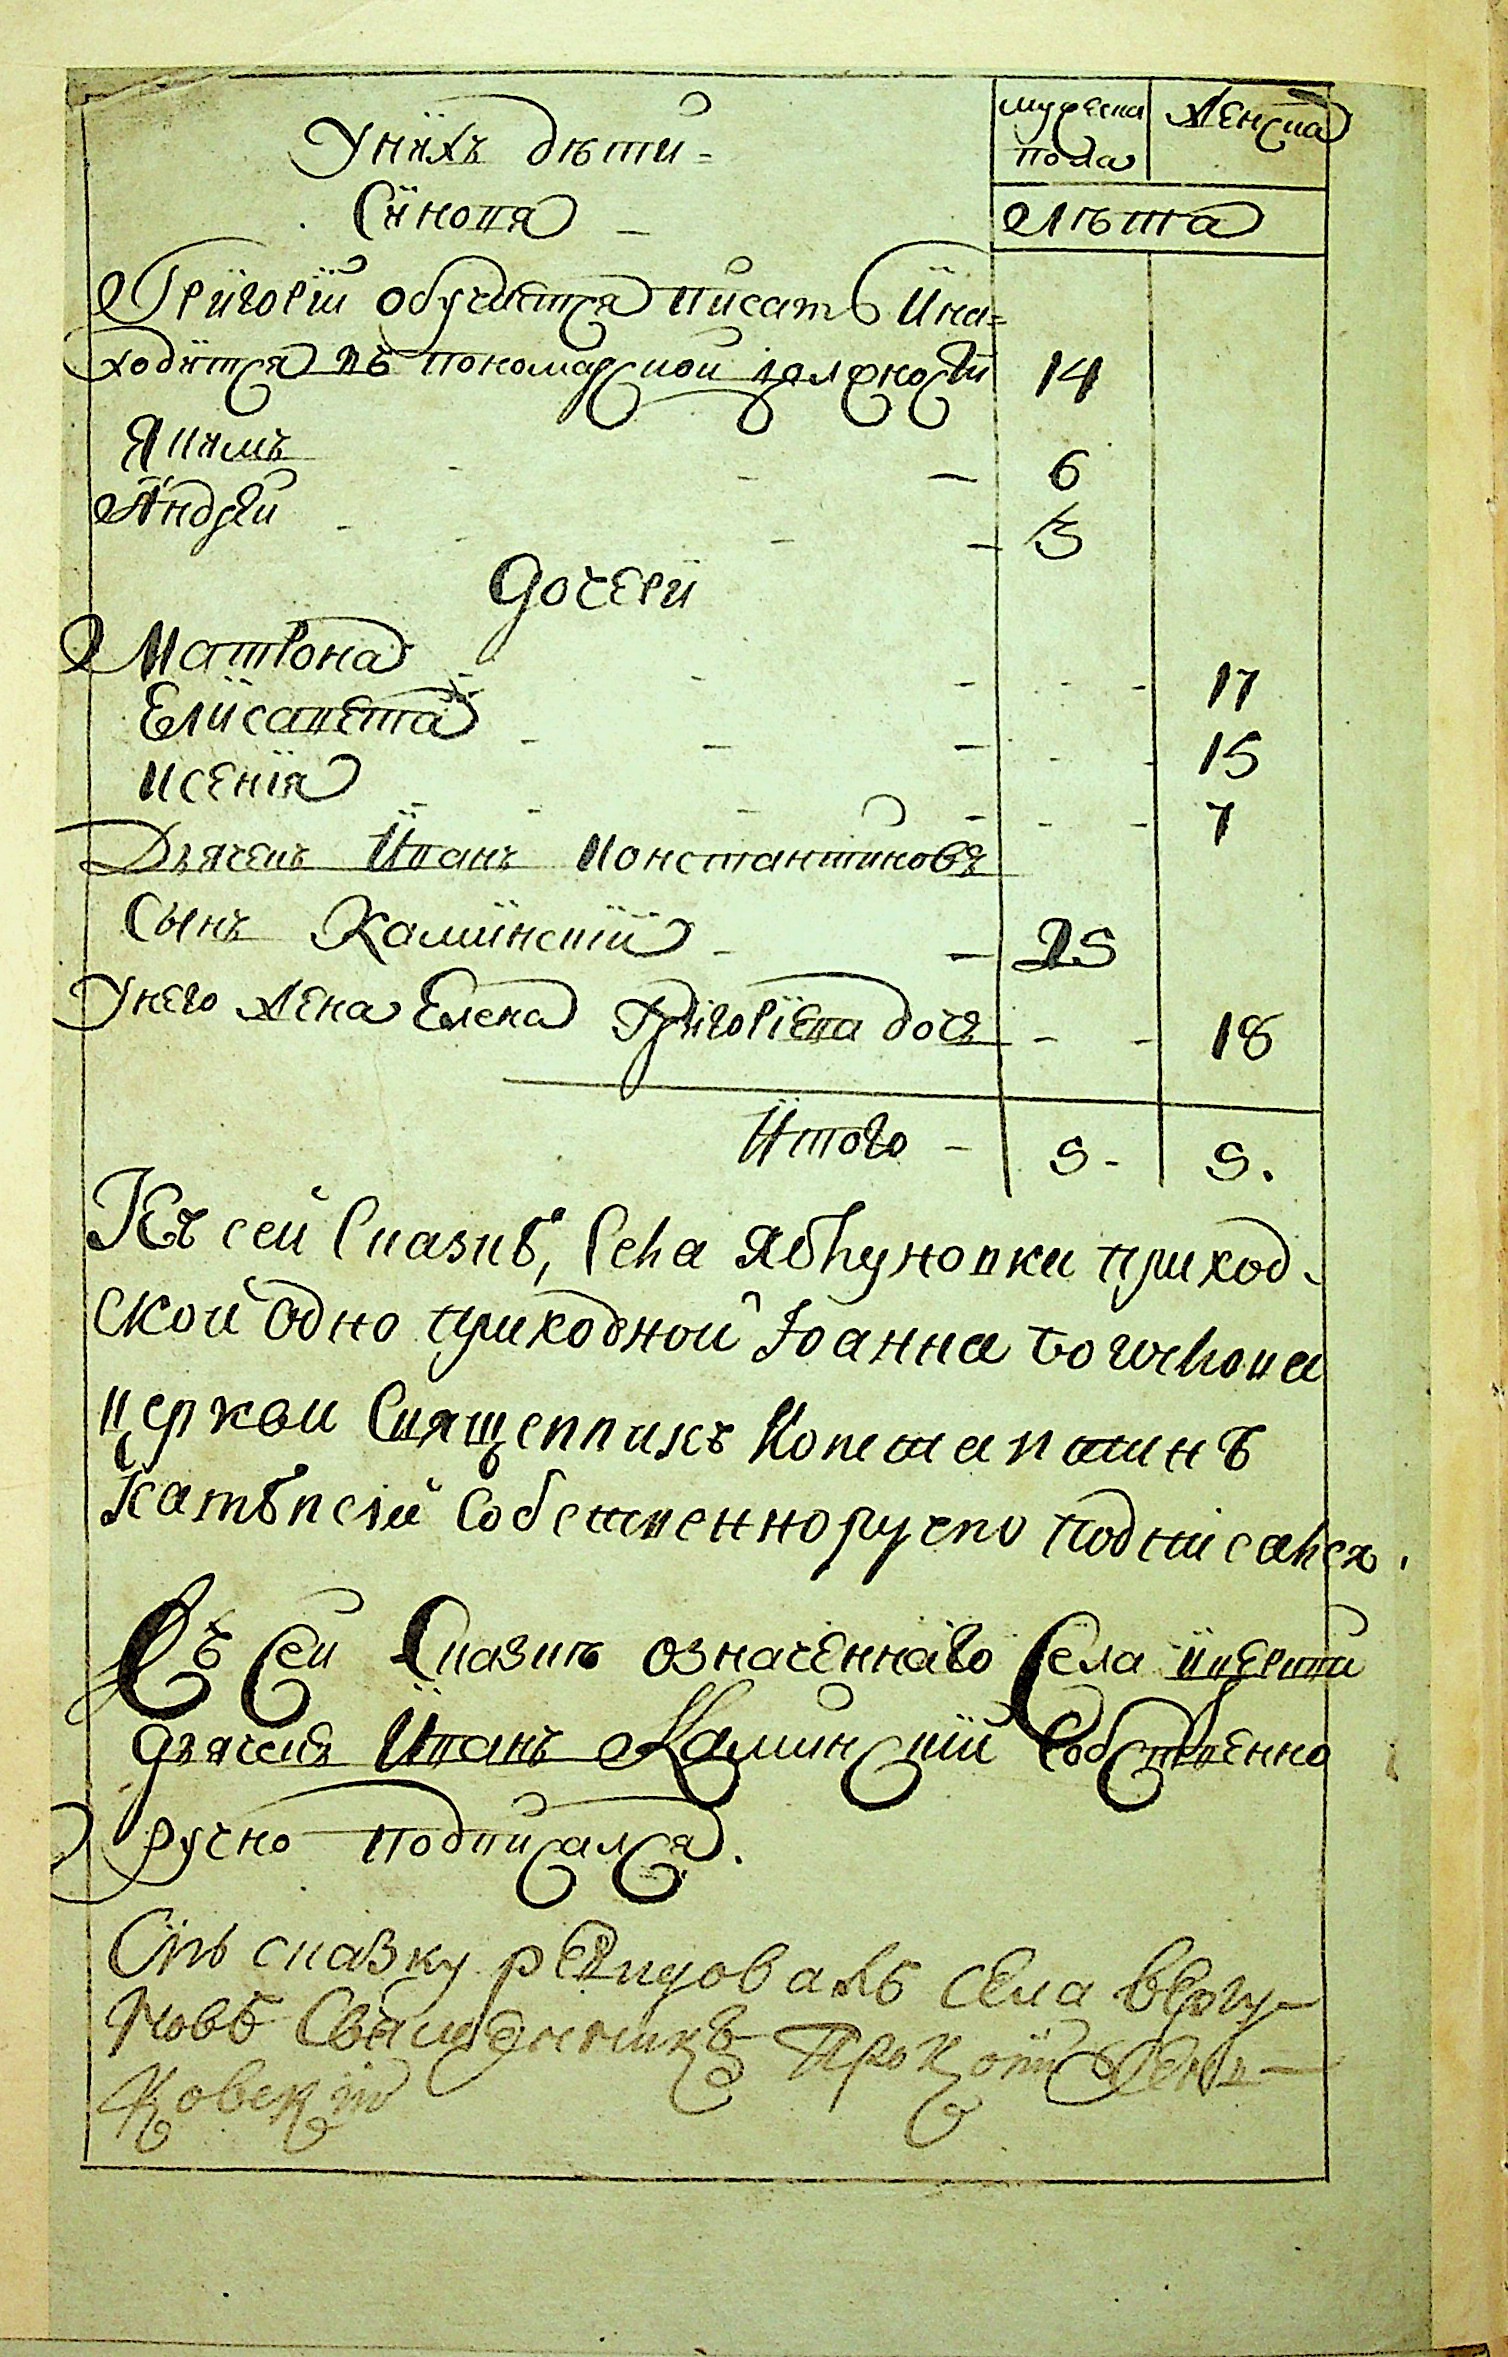 мужеска Женска
пола
Унихъ дѣти
Синовя
Лѣта
Григорій обучается писать и на=
ходится въ пономарской должности 14
Якимъ 6
Андрей 3
Дочери
Матрона 17
Елисавета 15
Ксенія 7
Дьячекъ Иванъ Константиновъ
Сынъ Каминскій 25
Унего жена Елена Григоріева дочь 18
Итого 5 5.
Къ сей сказкѣ, села Яблуновки приход-
ской одно приходной Іоанна Богослова
церкви Священникъ Константинъ
Каменскій собственноручно подписалься.
Къ сей Сказкѣ означеннаго Села церкви
дьячекъ Иванъ Каминскій Собственно
ручно подписался.
Сию сказку села
Священникъ Прокопій